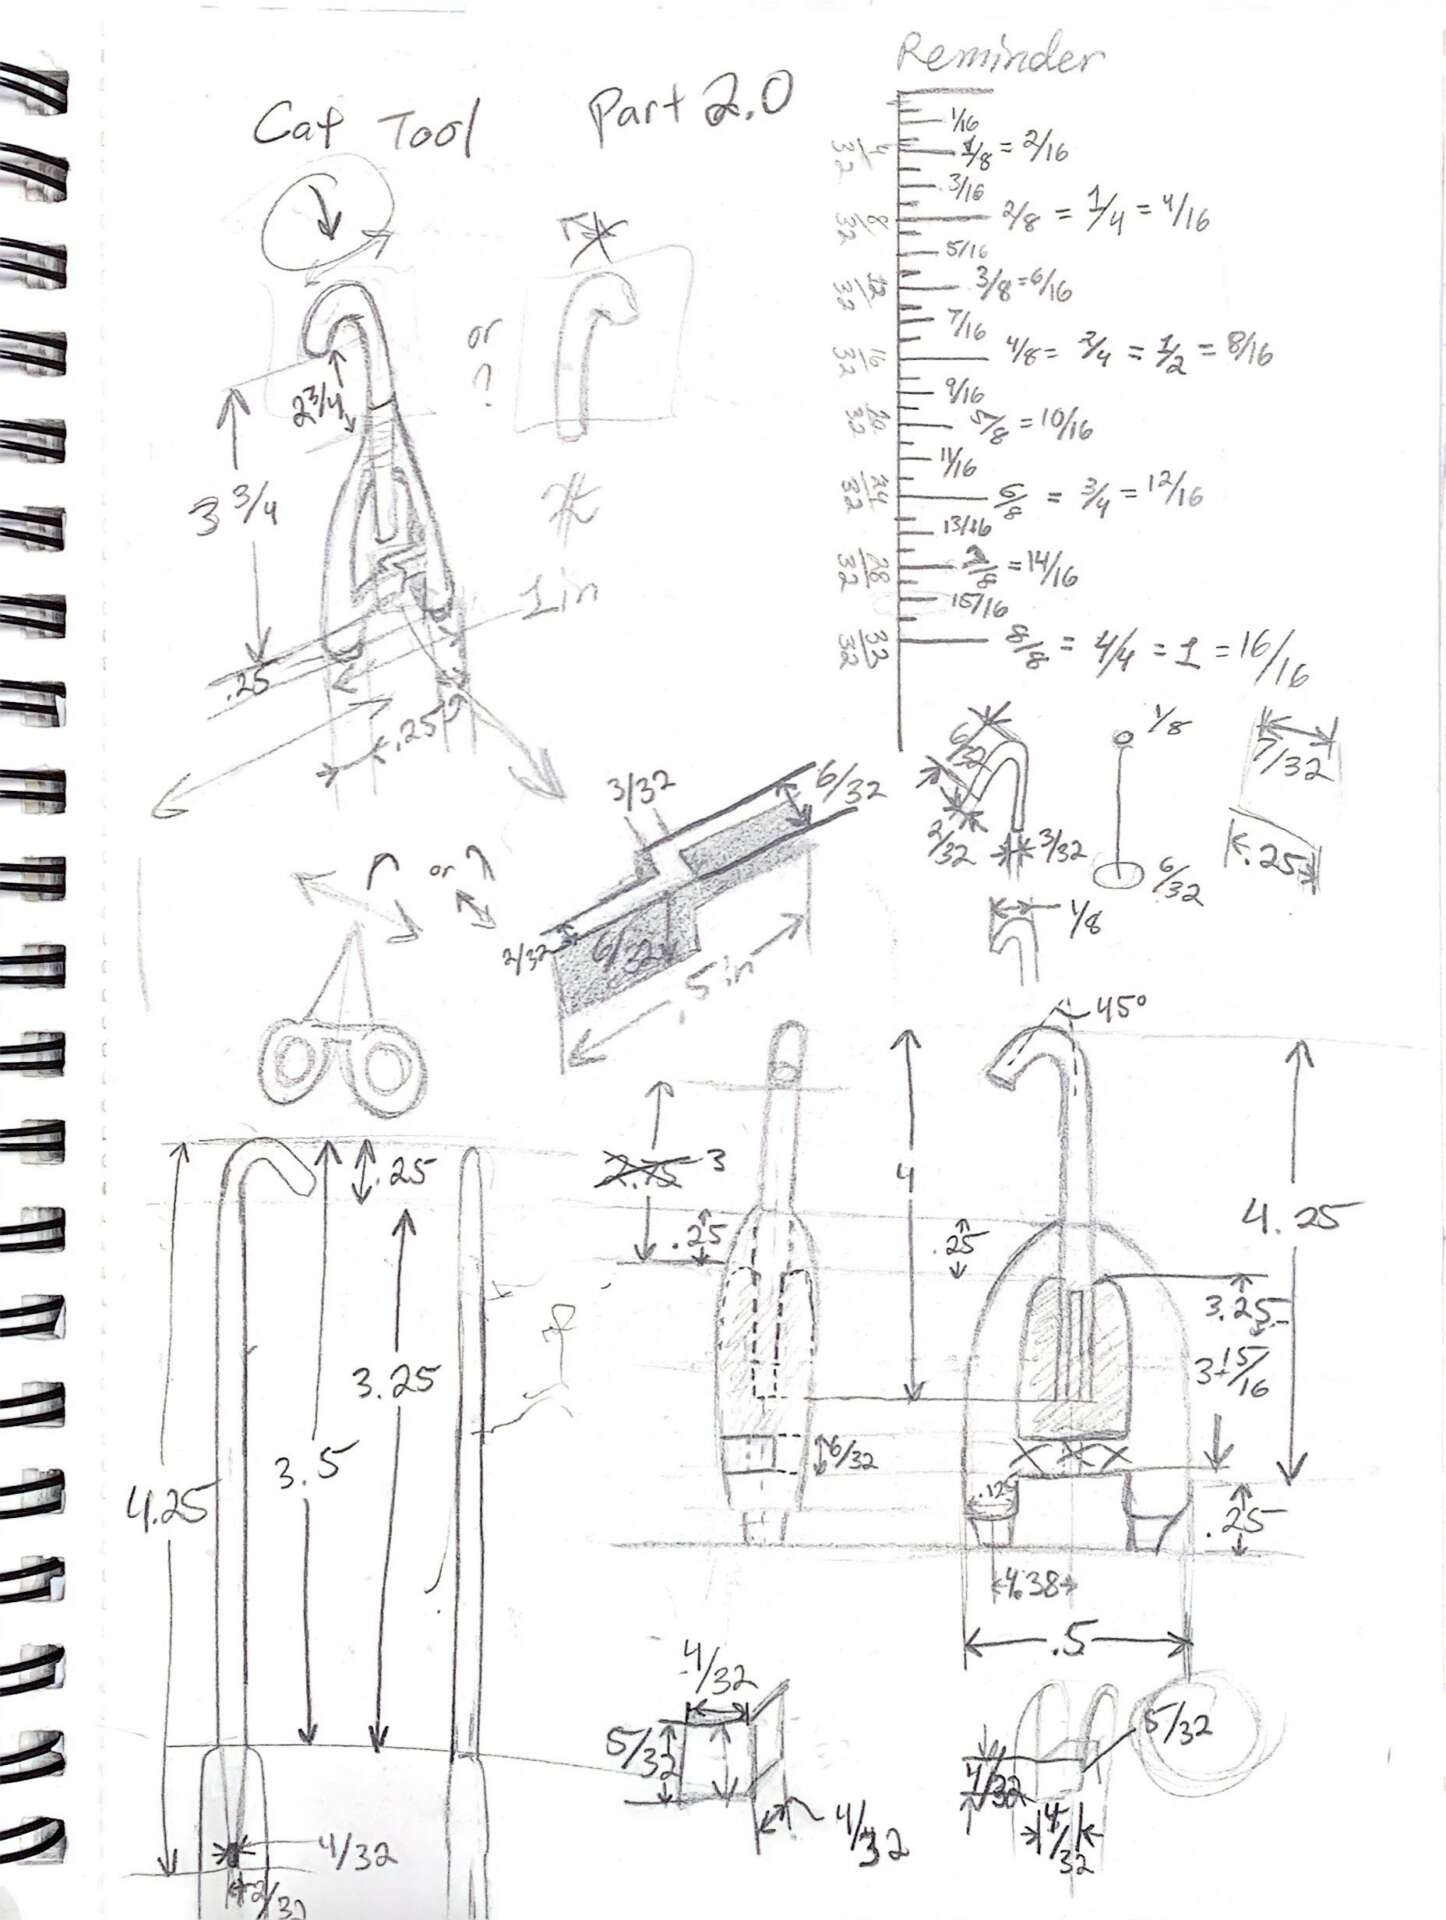 Reminder
Cat Tool Part 2.0
1/16
4/32 1/8 = 2/16
3/16
8/32 2/8 = 1/4 = 4/16
5/16
12/32 3/8 = 6/16
7/16
16/32 4/8 = 2/4 = 1/2 = 8/16
9/16
20/32 5/8 = 10/16
11/16
24/32 6/8 = 3/4 = 12/16
13/16
28/32 7/8 = 14/16
15/16
32/32 8/8 = 4/4 = 1 = 16/16
or
?
2 3/4
3 3/4
1 in
.25
.25
6/32
2/32
3/32
1/8
6/32
7/32
.25
1/8
3/32
6/32
2/32
6/32
.5 in
or
45°
2.75 3
.25
4
.25
4.25
3.25
3 15/16
6/32
.125
.25
.38
.5
.25
3.25
3.5
4.25
4/32
2/32
4/32
5/32
4/32
5/32
4/32
4/32